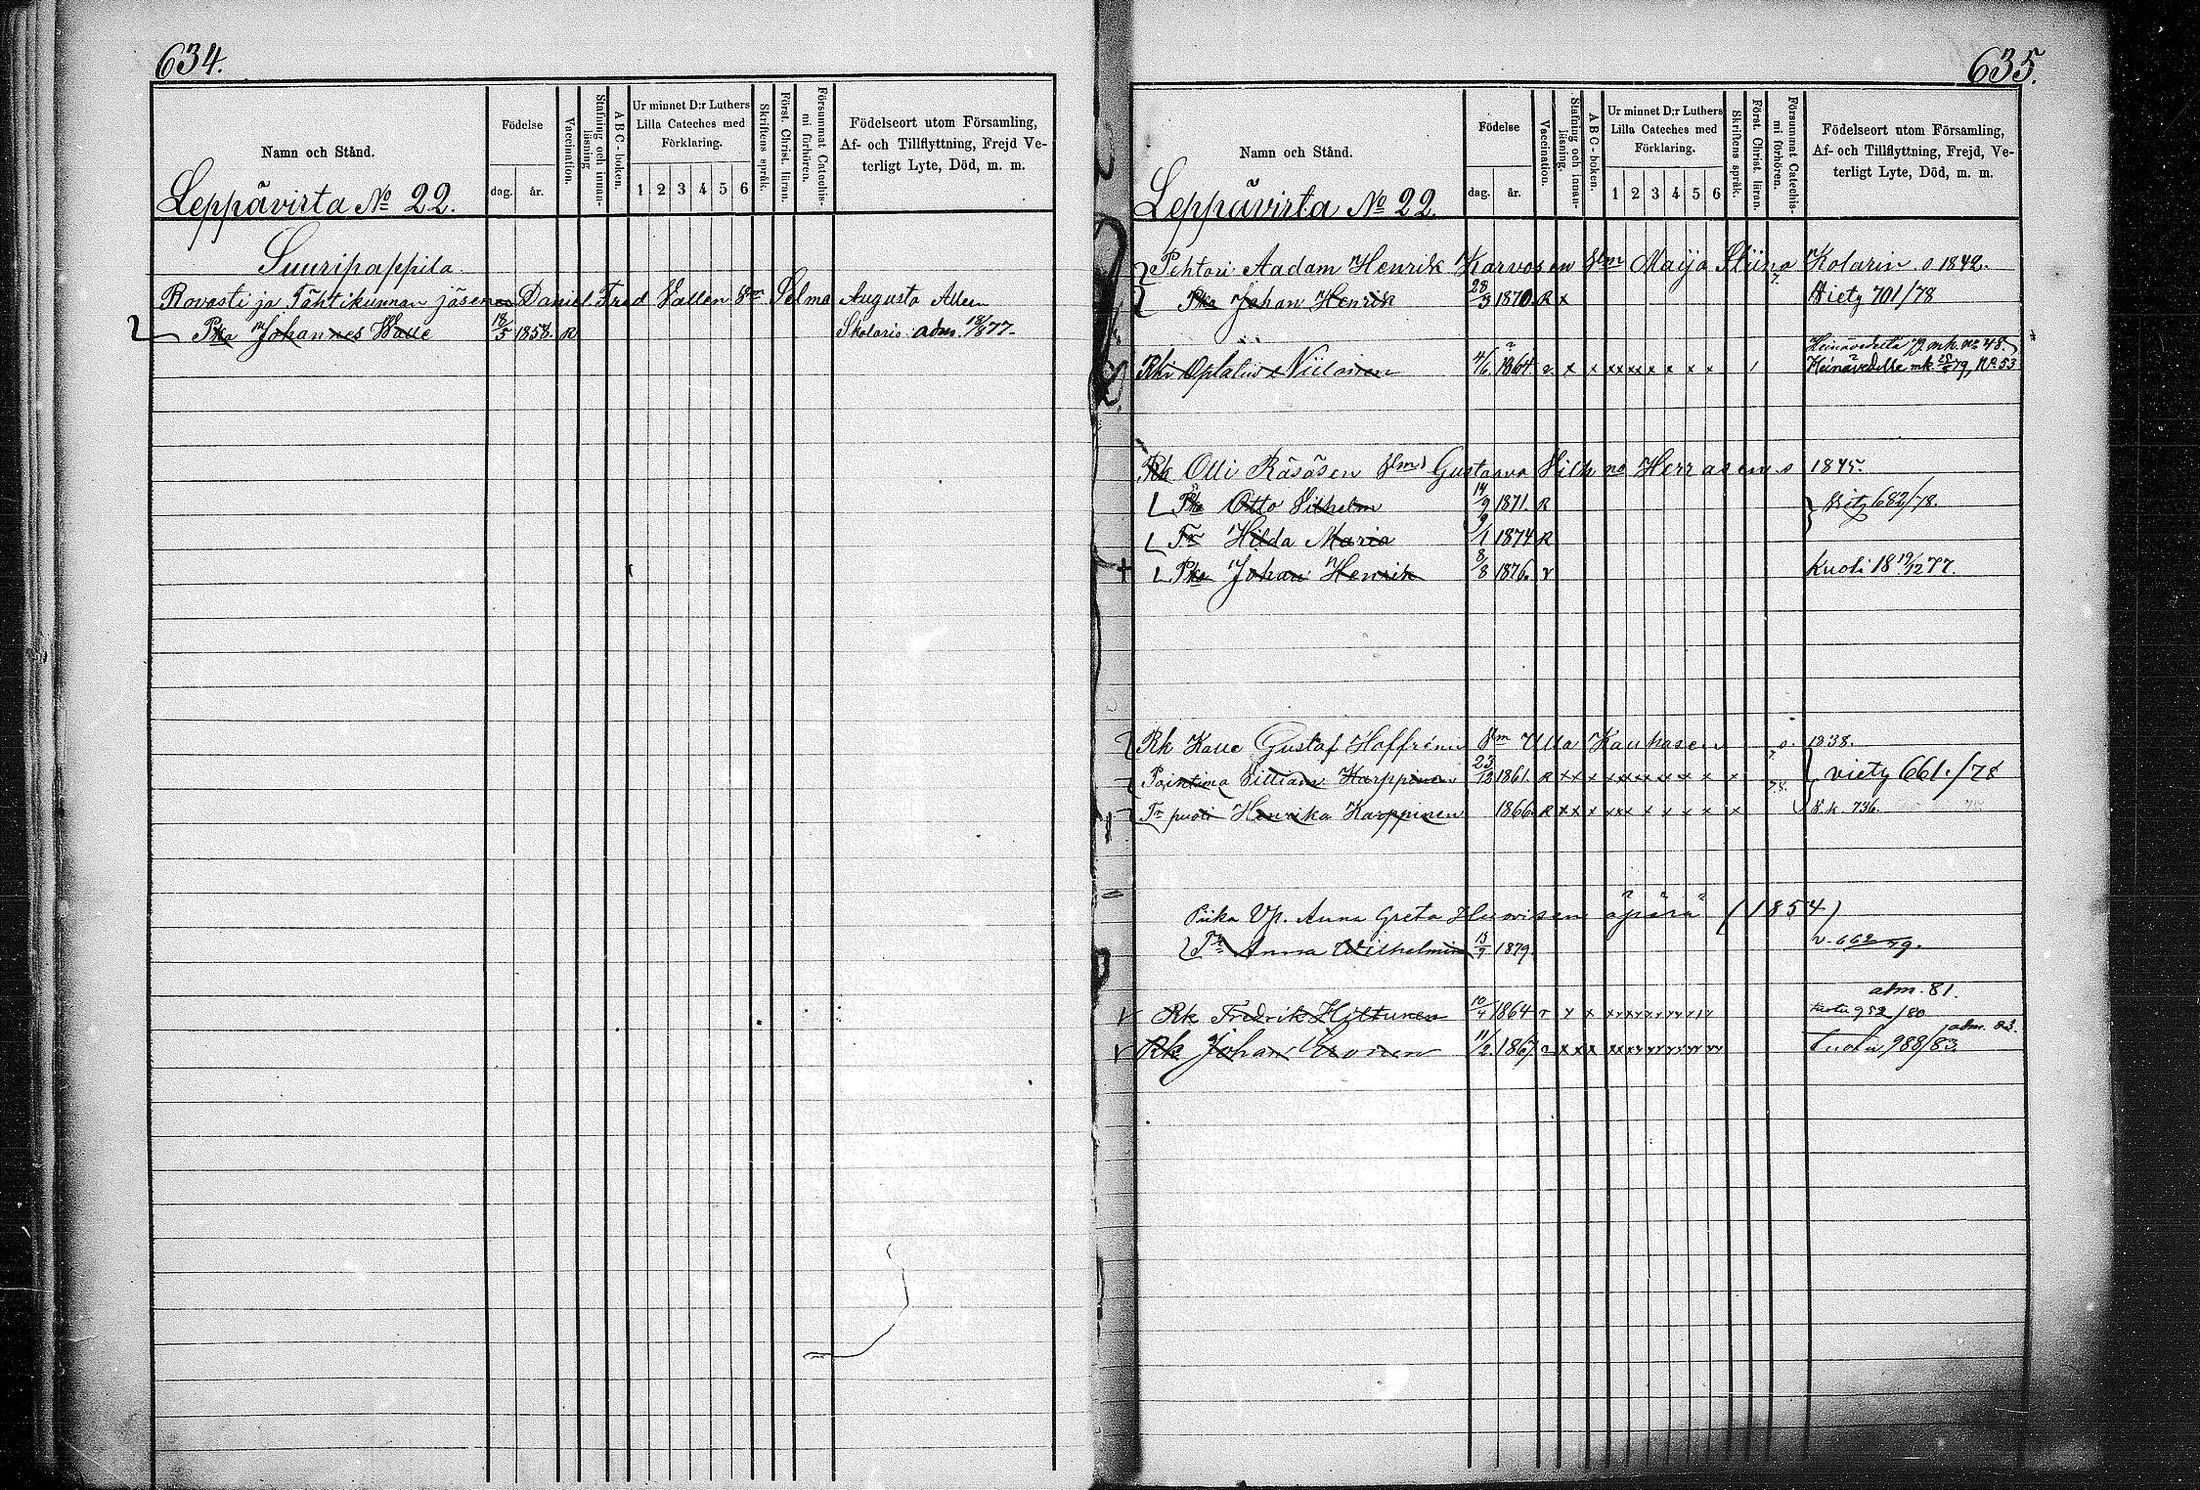 634.
Namn och Stånd.
Födelse
dag.
år.
Vaccination.
Stafning och innan-
läsning
ABC-boken.
Ur minnet D:r Luthers
Lilla Cateches med
Förklaring.
1 2 3 4 5 6
Skriftens språk.
Först. Christ. läran.
Försummat Catechis-
mi förhören.
Födelseort utom Församling,
Af- och Tillflyttning, Frejd Ve-
terligt Lyte, Död, m. m.
Leppävirta No 22.
Suuripappila.
Rovasti ja Tähtikunnan jäsen Daniel Fred Vallen Selma Augusta Allen
Pka Johannes Valle 18/5 1858. R Skolaris adm. 18/877.
635.
Namn och Stånd.
Födelse
dag.
år.
Vaccination.
Stafning och innan-
läsning.
ABC-boken.
Ur minnet D:r Luthers
Lilla Cateches med
Förklaring.
1 2 3 4 5 6
Skriftens språk.
Först. Christ. läran.
Försummat Catechis-
mi förhören.
Födelseort utom Församling,
Af- och Tillflyttning, Frejd, Ve-
terligt Lyte, Död, m. m.
Leppävirta No 22.
Pehtori Aadam Henrik Karvosen Vlm Maija Stiina Kolarin s 1842.
Pka Johan Henrik 28/3 1870. R x Viety 701/78
Niiloinen 4/6 1864 x x xxxx x x x x Heinävedelle mk. 79, No 53
Rk Olli Räsäsen Vlm Gustaava Vilh na Herrasen s 1845.
Pka Otto Vilhelm 14/9 1871. R Viety 682/78.
Tr Hilda Maria 9/1 1874 R
Pka Johan Henrik 8/8 1876. v Kuoli 18 19/12 77.
Rk Kalle Gustaf Hoffrénin Vlm Ulla Kauhasen s. 1838.
Karppinen 23/12 1861. R xx x xxxxx x x x x viety 661./78
Tr puoli Henrika Karppinen 1866. R xx x xxx x x x x x x S. k. 736.
Piika Vp. Anna Greta äpärä (1854)
Tr Anna Wilhelmina 13/9 1879. v. 662/79.
adm. 81.
Rk Fredrik Hiltunen 10/4 1864 952/80
adm. 83.
Rk Johan 11/2 1867 988/83.